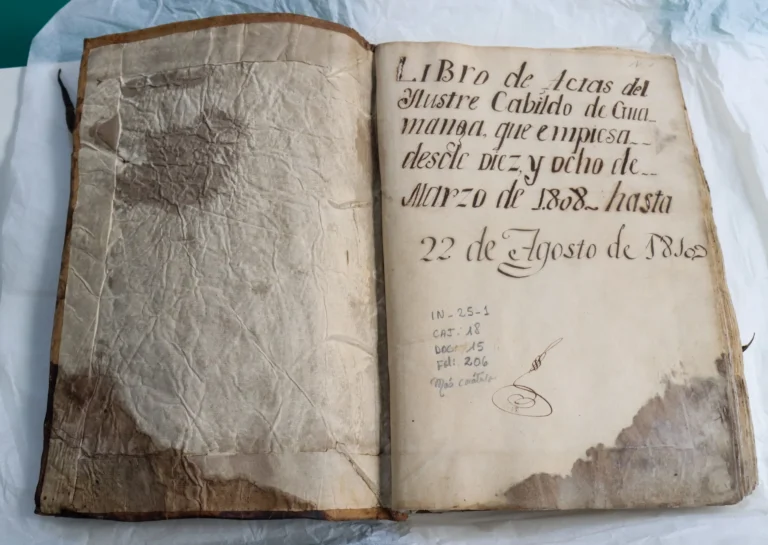 LiBro de Actas del
Ylustre Cabildo de Gua_
manga, que empiesa_ _
desde Diez, y ocho de_ _
Marzo de 1808_ hasta
22 de Agosto de
IN_25-1
CAJ: 18
DOC: 15
Fol: 206
Más carátula